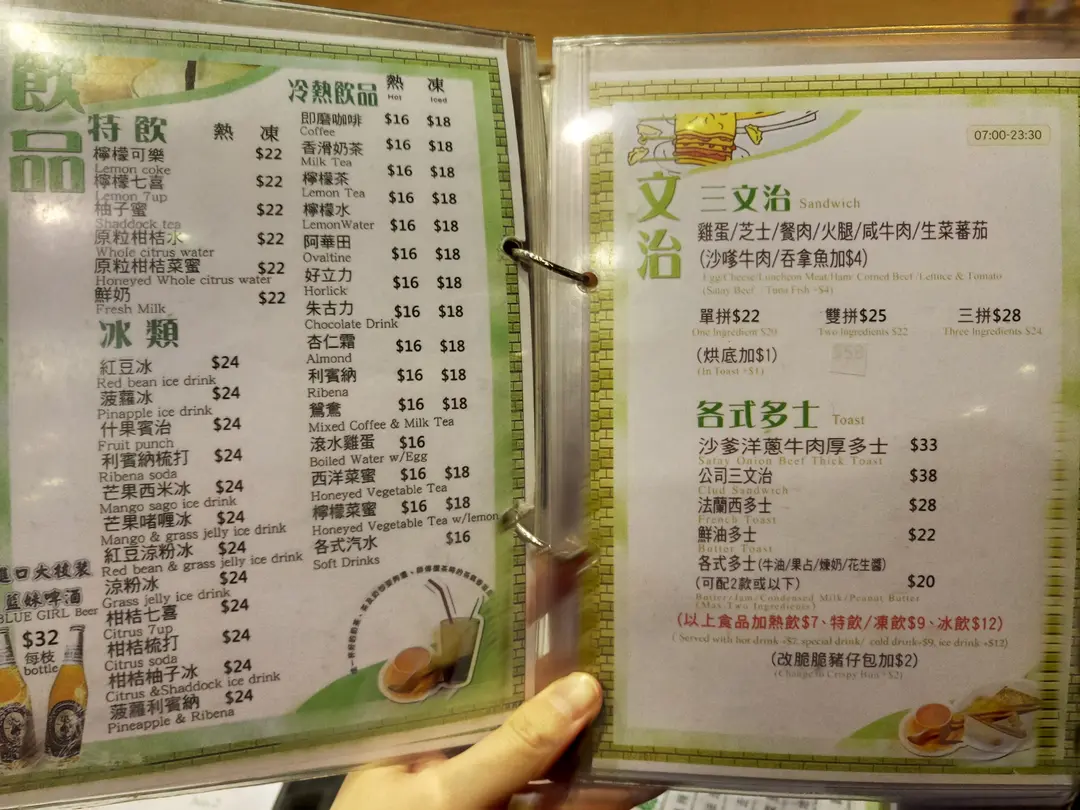 飲品
特飲 熱 凍
檸檬可樂 $22
Lemon coke
檸檬七喜 $22
Lemon 7up
柚子蜜 $22
Shaddock tea
原粒柑桔水 $22
Whole citrus water
原粒柑桔菜蜜 $22
Honeyed Whole citrus water
鮮奶 $22
Fresh Milk
冰類
紅豆冰 $24
Red bean ice drink
菠蘿冰 $24
Pinapple ice drink
什果賓治 $24
Fruit punch
利賓納梳打 $24
Ribena soda
芒果西米冰 $24
Mango sago ice drink
芒果啫喱冰 $24
Mango & grass jelly ice drink
紅豆涼粉冰 $24
Red bean & grass jelly ice drink
涼粉冰 $24
Grass jelly ice drink
柑桔七喜 $24
Citrus 7up
柑桔梳打 $24
Citrus soda
柑桔柚子冰 $24
Citrus &Shaddock ice drink
菠蘿利賓納 $24
Pineapple & Ribena
進口大枝裝
藍妹啤酒
BLUE GIRL Beer
$32
每枝
bottle
冷熱飲品 熱 凍
Hot Iced
即磨咖啡 $16 $18
Coffee
香滑奶茶 $16 $18
Milk Tea
檸檬茶 $16 $18
Lemon Tea
檸檬水 $16 $18
LemonWater
阿華田 $16 $18
Ovaltine
好立力 $16 $18
Horlick
朱古力 $16 $18
Chocolate Drink
杏仁霜 $16 $18
Almond
利賓納 $16 $18
Ribena
鴛鴦 $16 $18
Mixed Coffee & Milk Tea
滾水雞蛋 $16
Boiled Water w/Egg
西洋菜蜜 $16 $18
Honeyed Vegetable Tea
檸檬菜蜜 $16 $18
Honeyed Vegetable Tea w/lemon
各式汽水 $16
Soft Drinks
07:00-23:30
文治
三文治 Sandwich
雞蛋/芝士/餐肉/火腿/咸牛肉/生菜蕃茄
(沙嗲牛肉/吞拿魚加$4)
Egg/Cheese/Luncheon Meat/Ham/ Corned Beef /Lettuce & Tomato
(Satay Beef Tuna Fish +$4)
單拼$22 雙拼$25 三拼$28
One Ingredient $20 Two Ingredients $22 Three Ingredients $24
(烘底加$1)
(In Toast +$1)
各式多士 Toast
沙爹洋蔥牛肉厚多士 $33
Satay Onion Beef Thick Toast
公司三文治 $38
Clud Sandwich
法蘭西多士 $28
French Toast
鮮油多士 $22
Butter Toast
各式多士(牛油/果占/煉奶/花生醬)
(可配2款或以下) $20
Butter/Jam/Condensed Milk/Peanut Butter
(Max Two Ingredients)
(以上食品加熱飲$7、特飲/凍飲$9、冰飲$12)
( Served with hot drink +$2 special drink/ cold drink+$9, ice drink +$12)
(改脆脆豬仔包加$2)
(Change to Crispy Bun +$2)